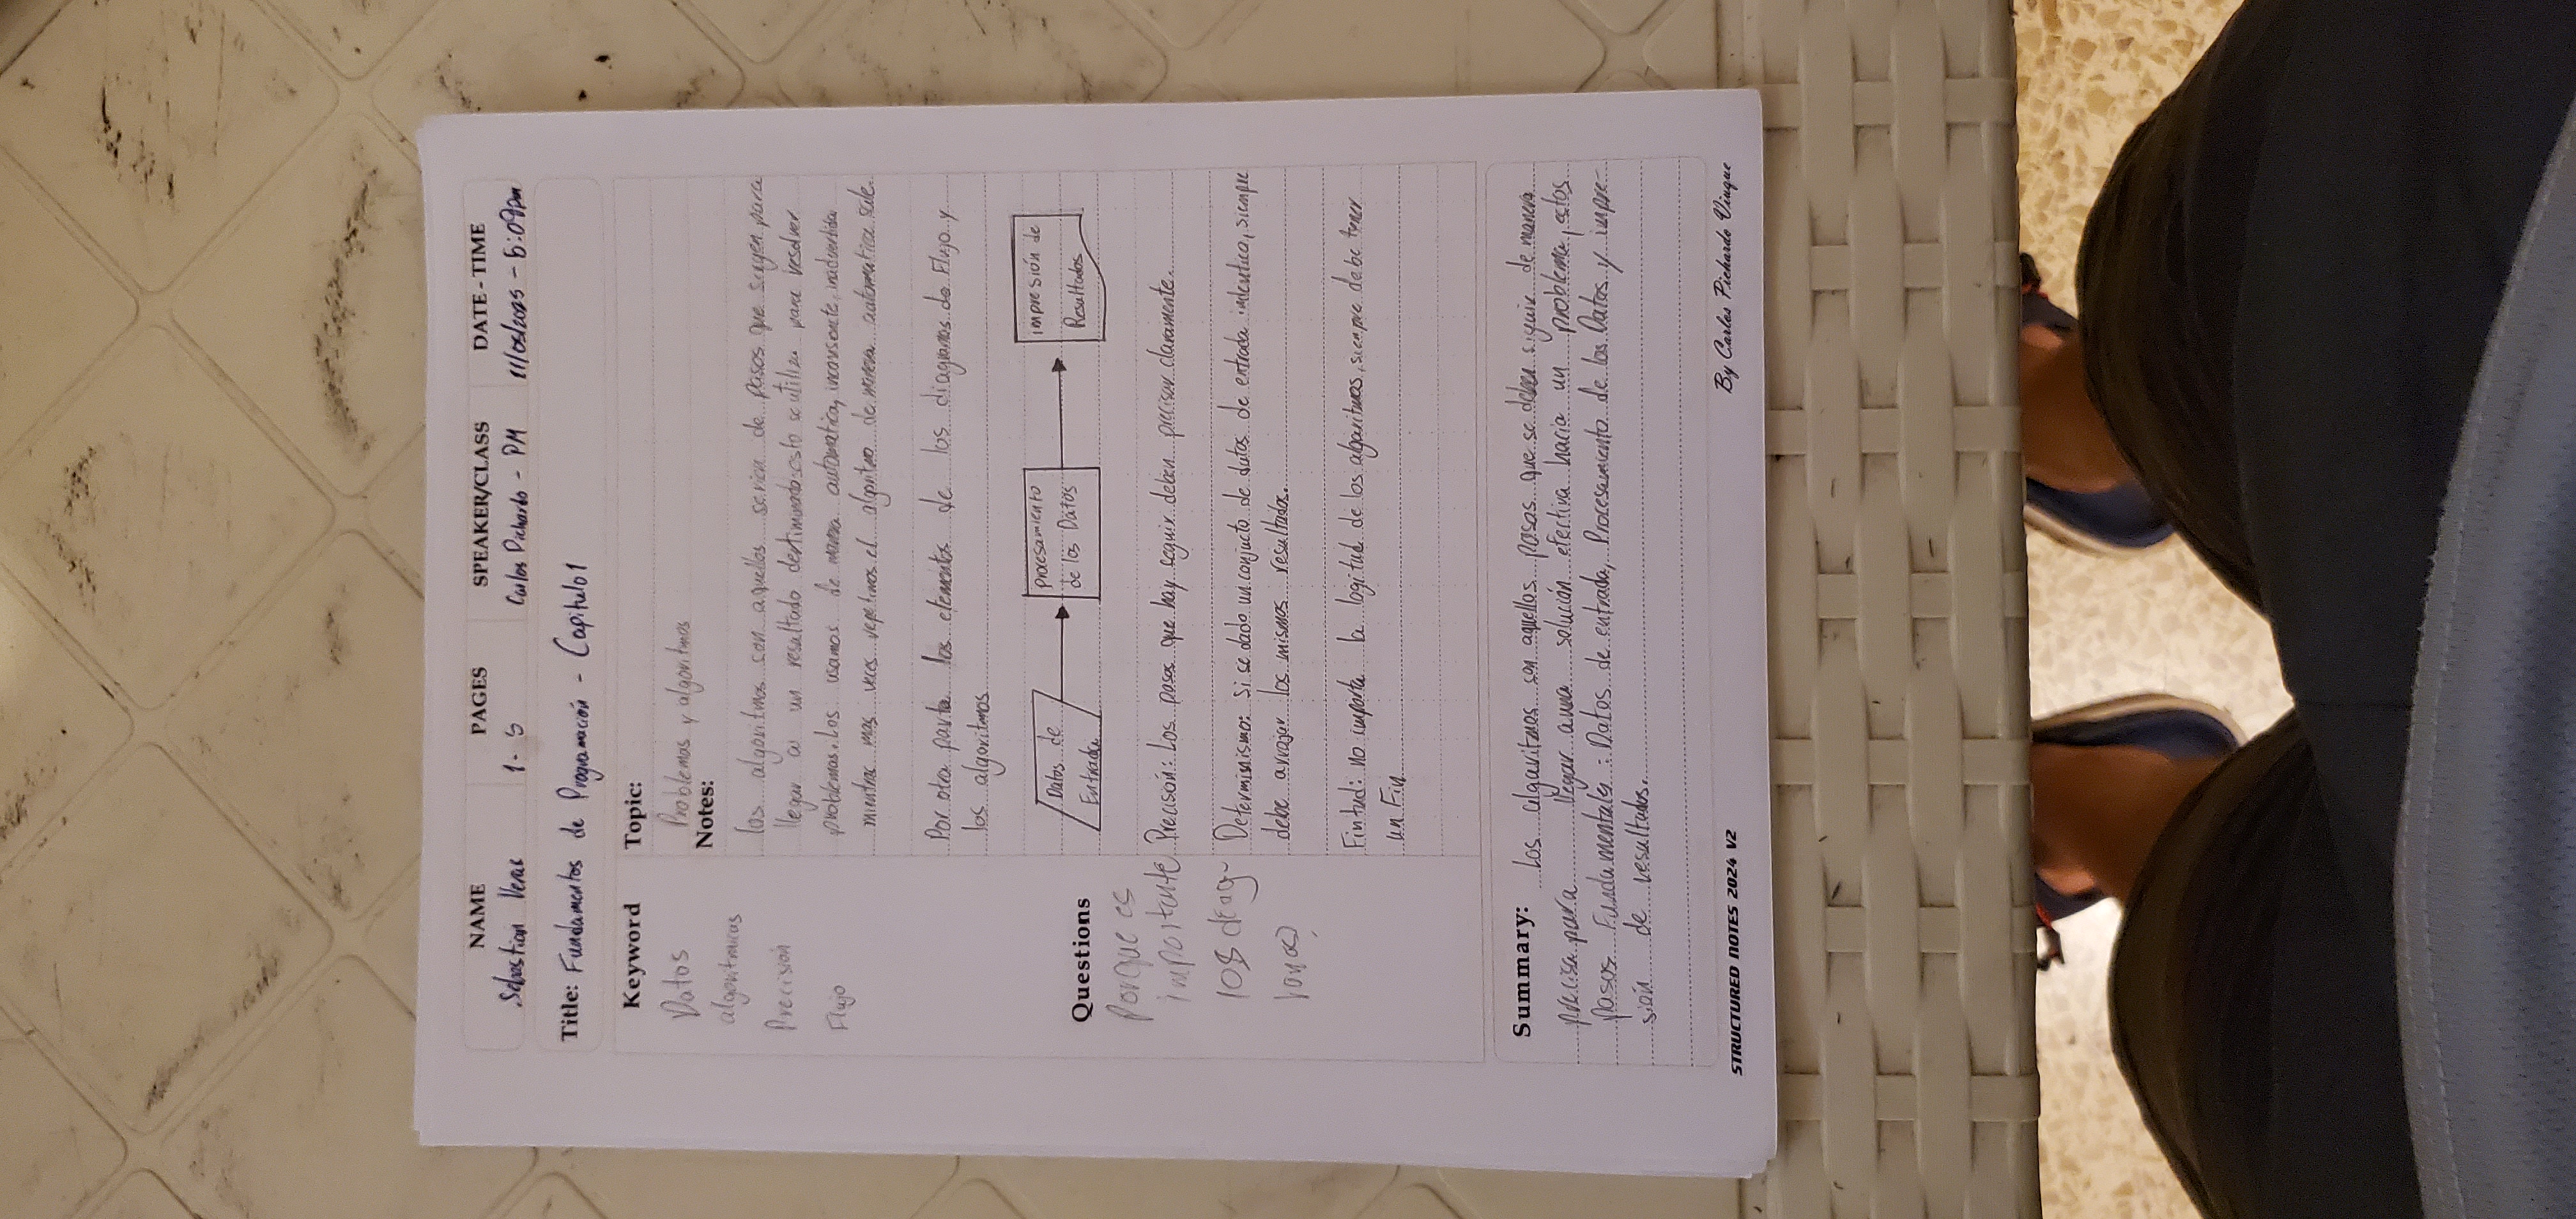 NAME PAGES SPEAKER/CLASS DATE - TIME
Sebastian Veras 1 - 5 Carlos Pichardo - PM 11/05/2025 - 5:09pm
Title: Fundamentos de Programación - Capitulo 1
Keyword
Datos
algoritmicas
Precisión
Flujo
Topic:
Problemas y algoritmos
Notes:
los algoritmos son aquellos serien de pasos que sigen para
llegar a un resultado dertiminado esto se utiliza para resolver
problemas. Los usamos de manra automatica, inconsiente, inadvertida
mientras mas veces repetimos el algoritmo de manera automatica sale.
Por otra parta los elementos de los diagramas de Flujo y
los algoritmos
Datos de
Entrada
procesamiento
de los Datos
impresión de
Resultados
Questions
Porque es
importante
los diag-
Precisión: Los pasos que hay seguir deben precisar claramente.
Determinismo: Si se dado un conjucto de datos de entrada indentico, siempre
debe arrojar los mismos resultados.
Fintud: no importa la logitud de los algoritmos, siempre debe tener
un Fin
Summary: Los algoritmos son aquellos pasos que se deben siguir de manera
precisa para llegar a una solución efectiva hacia un problema, estos
pasos Fundamentales: Datos de entrada, Procesamiento de los Datos y impre-
sión de resultados.
STRUCTURED NOTES 2024 V2
By Carlos Pichardo Viuque